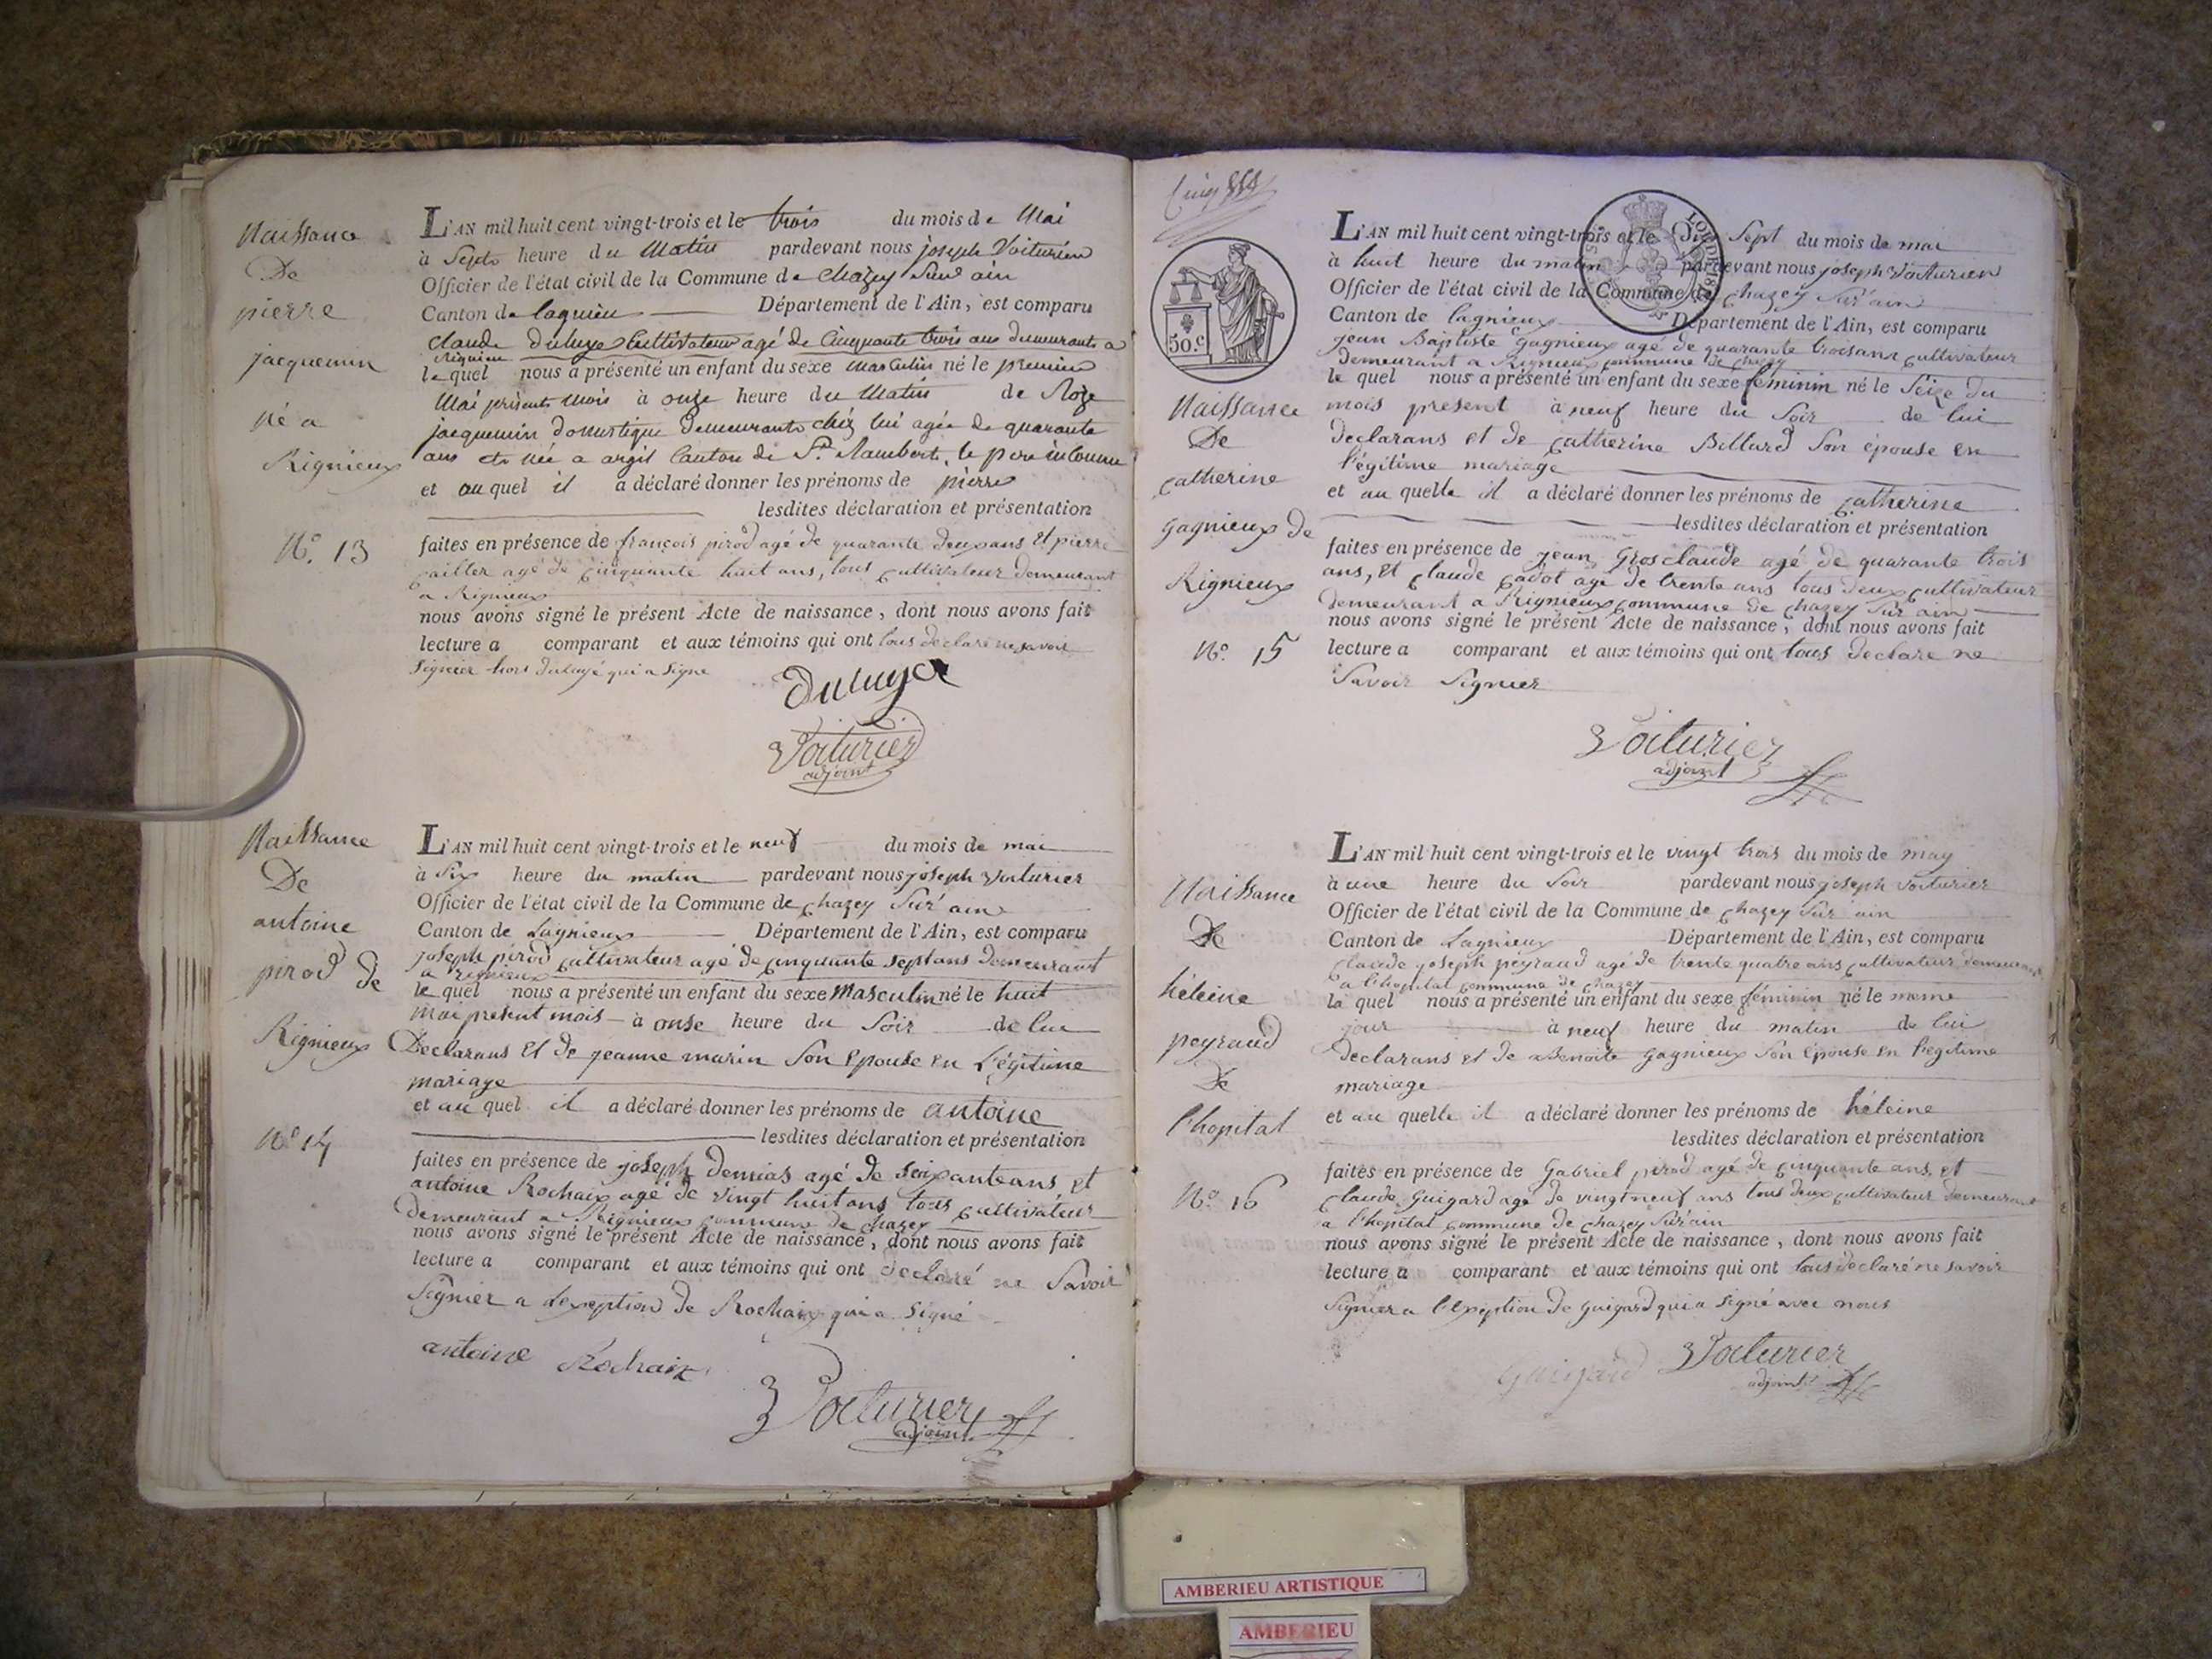 Naissance
De
pierre
jacquemin
né a
Rignieux
N.º 13
L'AN mil huit cent vingt-trois et le trois du mois de Mai
à Sept heure du Matin pardevant nous joseph Voiturier
Officier de l'état civil de la Commune de Chazey Sur ain
Canton de lagnieu Département de l'Ain, est comparu
Claude Duluye Cultivateur agé de Cinquante trois ans demeurants a
Rignieu
le quel nous a présenté un enfant du sexe Masculin né le premier
Mai présents mois à onze heure du Matin de Roze
jacquemin domestique demeurants chéz lui agée de quarante
ans et née a argit Canton de St. Rambert, le père inconnu
et au quel il a déclaré donner les prénoms de pierre
lesdites déclaration et présentation
faites en présence de françois pirod agé de quarante deux ans Et pierre
cailler agé de cinquante huit ans, tous cultivateur demeurant
a Rignieux
nous avons signé le présent Acte de naissance, dont nous avons fait
lecture a comparant et aux témoins qui ont tous declaré ne savoir
signier hors duluyé qui a signe
Duluye
Voiturier
adjoint
Naissance
De
antoine
pirod de
Rignieux
N.º 14
L'AN mil huit cent vingt-trois et le neuf du mois de mai
à Six heure du matin pardevant nous joseph Voiturier
Officier de l'état civil de la Commune de chazey Sur ain
Canton de Lagnieux Département de l'Ain, est comparu
joseph pirod cultivateur agé de cinquante sept ans demeurant
a rignieux
le quel nous a présenté un enfant du sexe Masculin né le huit
mai present mois à onse heure du Soir de lui
Declarans Et de jeanne marin Son Epouse en Légitime
mariage
et au quel il a déclaré donner les prénoms de antoine
lesdites déclaration et présentation
faites en présence de joseph demias agé de Soixante ans et
antoine Rochaix agé de vingt huit ans tous cultivateur
demeurant a Rignieux commune de chazey
nous avons signé le présent Acte de naissance, dont nous avons fait
lecture a comparant et aux témoins qui ont declaré ne Savoir
Signier a Lexeption de Rochaix qui a Signé
antoine Rochaix
Voiturier
adjoint
50.c
Naissance
De
catherine
gagnieux de
Rignieux
N.º 15
L'AN mil huit cent vingt-trois et le Dix Sept du mois de mai
à huit heure du matin pardevant nous joseph Voiturier
Officier de l'état civil de la Commune de chazey Sur ain
Canton de lagnieux Département de l'Ain, est comparu
jean Baptiste gagnieux agé de quarante trois ans cultivateur
demeurant a Rignieux commune de chazey
le quel nous a présenté un enfant du sexe féminin né le Seize du
mois present à neuf heure du Soir de lui
declarans et de catherine Billard Son épouse en
légitime mariage
et au quelle il a déclaré donner les prénoms de catherine
lesdites déclaration et présentation
faites en présence de jean Grosclaude agé de quarante trois
ans, et claude cadot agé de trente ans tous deux cultivateur
demeurant a Rignieux commune de chazey Sur ain
nous avons signé le présent Acte de naissance, dont nous avons fait
lecture a comparant et aux témoins qui ont tous declare ne
Savoir Signier
Voiturier
adjoint
Naissance
De
héleine
peyraud
De
l'hopital
N.º 16
L'AN mil huit cent vingt-trois et le vingt trois du mois de may
à une heure du Soir pardevant nous joseph Voiturier
Officier de l'état civil de la Commune de chazey Sur ain
Canton de Lagnieux Département de l'Ain, est comparu
claude joseph peyraud agé de trente quatre ans cultivateur demeurant
a l'hopital commune de chazey
la quel nous a présenté un enfant du sexe féminin né le meme
jour à neuf heure du matin de lui
declarans et de Benoite gagnieux Son épouse en legitime
mariage
et au quelle il a déclaré donner les prénoms de héleine
lesdites déclaration et présentation
faites en présence de Gabriel pirod agé de cinquante ans, et
claude Guigard agé de vingt neuf ans tous deux cultivateur demeurant
a l'hopital commune de chazey Sur ain
nous avons signé le présent Acte de naissance, dont nous avons fait
lecture a comparant et aux témoins qui ont tous declaré ne savoir
Signier a l'exéption de guigard qui a signé avec nous
Guigard Voiturier
adjoint
AMBERIEU ARTISTIQUE
AMBERIEU